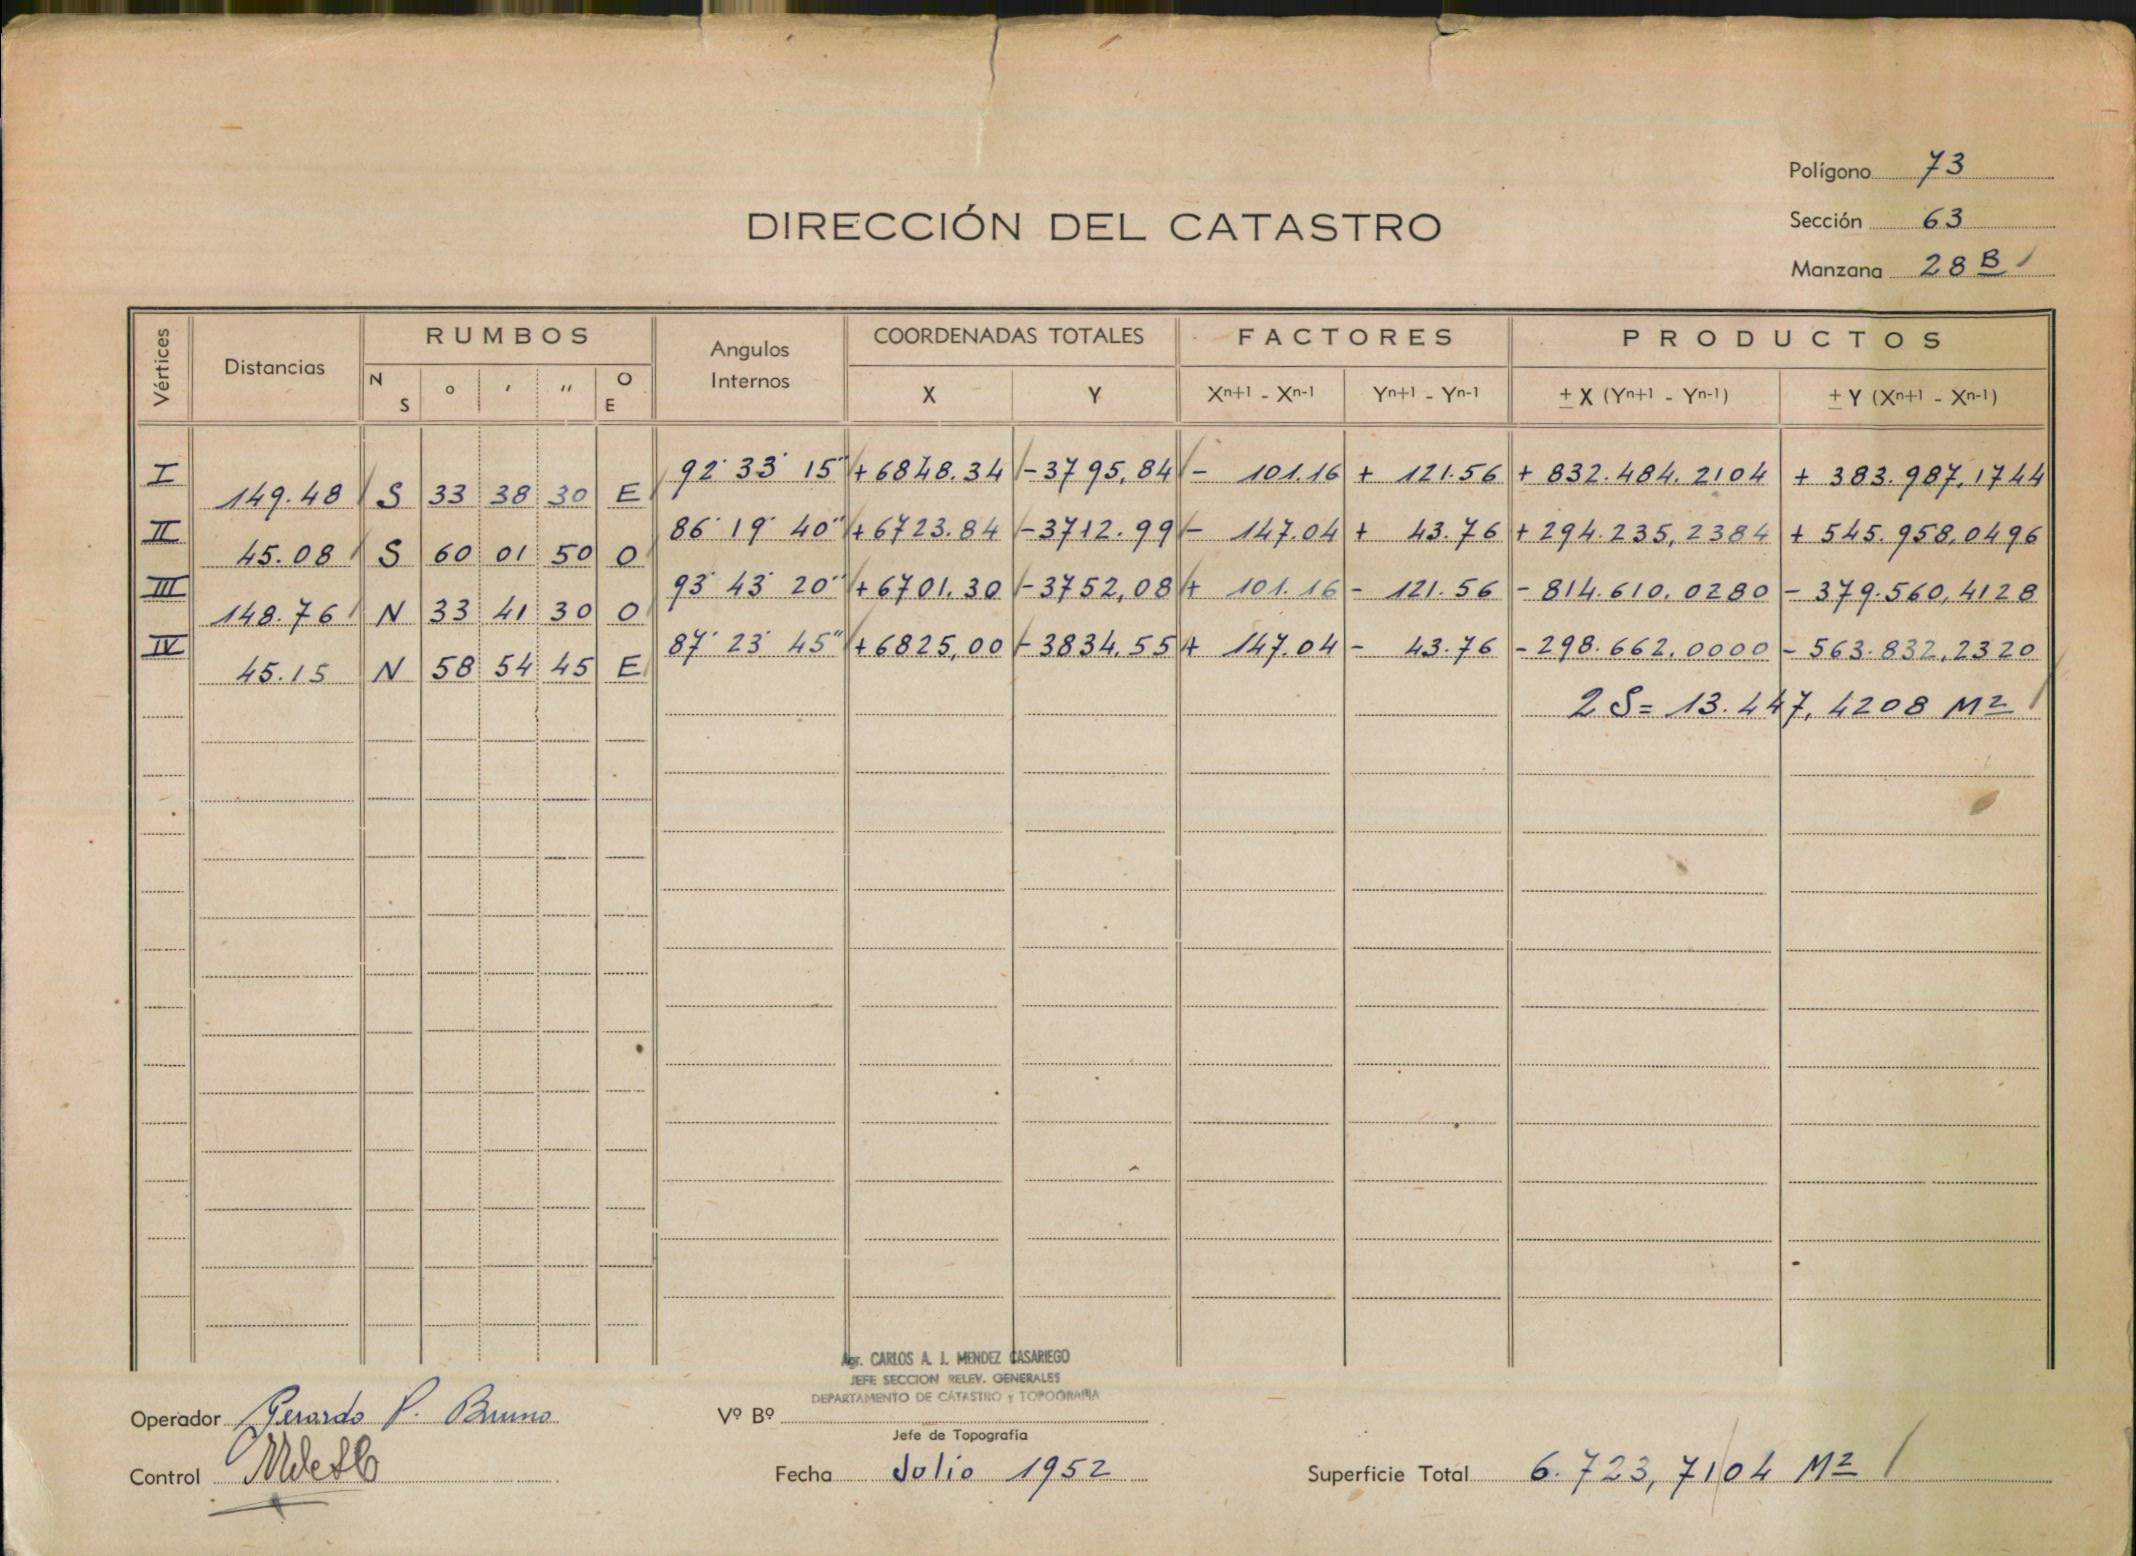 Polígono 73
DIRECCIÓN DEL CATASTRO
Sección 63
Manzana 28 B
Vértices Distancias RUMBOS Angulos Internos COORDENADAS TOTALES FACTORES PRODUCTOS
N S ° ' " O E X Y Xn+1 - Xn-1 Yn+1 - Yn-1 ± X (Yn+1 - Yn-1) ± Y (Xn+1 - Xn-1)
I 92° 33' 15" +6848.34 -3795,84 - 101.16 + 121.56 + 832.484.2104 + 383.987,1744
149.48 S 33 38 30 E
II 86° 19' 40" +6723.84 -3712.99 - 147.04 + 43.76 +294.235,2384 + 545.958,0496
45.08 S 60 01 50 O
III 93° 43' 20" +6701.30 -3752,08 + 101.16 - 121.56 -814.610.0280 - 379.560,4128
148.76 N 33 41 30 O
IV 87° 23' 45" +6825,00 -3834.55 + 147.04 - 43.76 -298.662.0000 - 563.832,2320
45.15 N 58 54 45 E
2 S = 13.447,4208 M2
Agr. CARLOS A. J. MENDEZ CASARIEGO
JEFE SECCION RELEV. GENERALES
DEPARTAMENTO DE CATASTRO y TOPOGRAFIA
Operador Gerardo P. Bruno Vº Bº
Jefe de Topografía
Control Fecha Julio 1952 Superficie Total 6.723,7104 M2